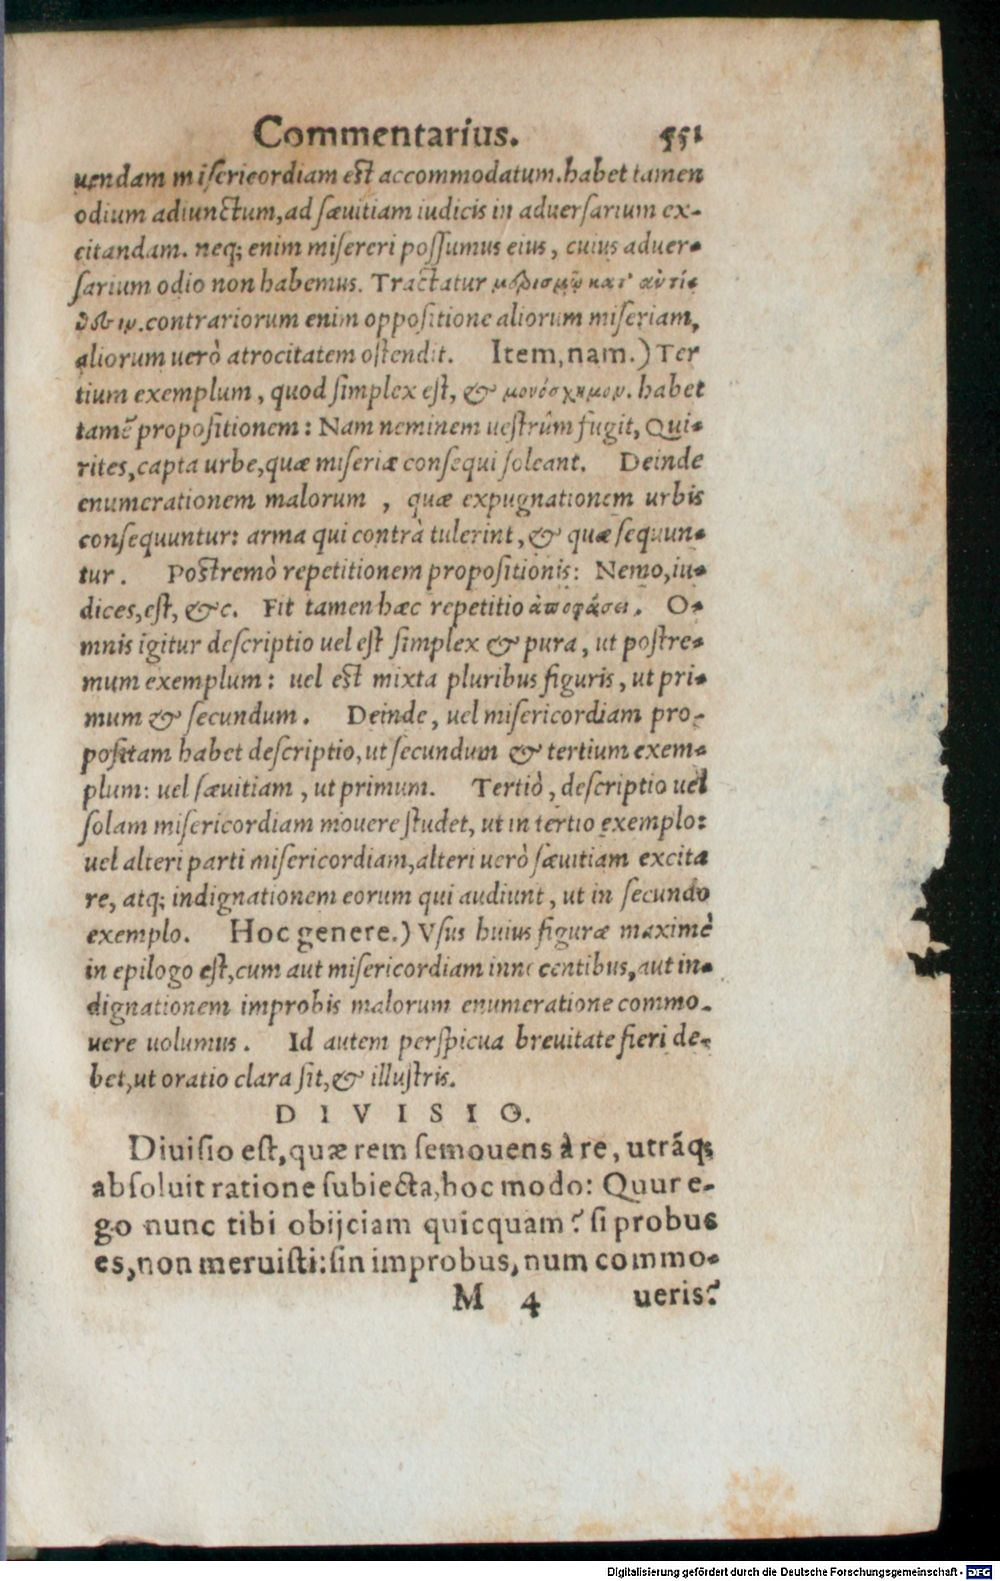 Commentarius. 551
uendam misericordiam est accommodatum. habet tamen
odium adiunctum, ad sæuitiam iudicis in aduersarium ex-
citandam. neq; enim misereri possumus eius, cuius aduer-
sarium odio non habemus. Tractatur κατ' ἀντί-
contrariorum enim oppositione aliorum miseriam,
aliorum uerò atrocitatem ostendit. Item, nam.) Ter
tium exemplum, quod simplex est, & μονόσχημον. habet
tamē propositionem: Nam neminem uestrûm fugit, Qui-
rites, capta urbe, quæ miseriæ consequi soleant. Deinde
enumerationem malorum, quæ expugnationem urbis
consequuntur: arma qui contrà tulerint, & quæ sequun-
tur. Postremò repetitionem propositionis: Nemo, iu-
dices, est, &c. Fit tamen hæc repetitio ἀποφάσει. O-
mnis igitur descriptio uel est simplex & pura, ut postre-
mum exemplum: uel est mixta pluribus figuris, ut pri-
mum & secundum. Deinde, uel misericordiam pro-
positam habet descriptio, ut secundum & tertium exem-
plum: uel sæuitiam, ut primum. Tertiò, descriptio uel
solam misericordiam mouere studet, ut in tertio exemplo:
uel alteri parti misericordiam, alteri uerò sæuitiam excita
re, atq; indignationem eorum qui audiunt, ut in secundo
exemplo. Hoc genere.) Vsus huius figuræ maximè
in epilogo est, cum aut misericordiam innocentibus, aut in-
dignationem improbis malorum enumeratione commo-
uere uolumus. Id autem perspicua breuitate fieri de-
bet, ut oratio clara sit, & illustris.
DIVISIO.
Diuisio est, quæ rem semouens à re, utrāq;
absoluit ratione subiecta, hoc modo: Quur e-
go nunc tibi obijciam quicquam? si probus
es, non meruisti: sin improbus, num commo-
M 4 ueris?
Digitalisierung gefördert durch die Deutsche Forschungsgemeinschaft - DFG